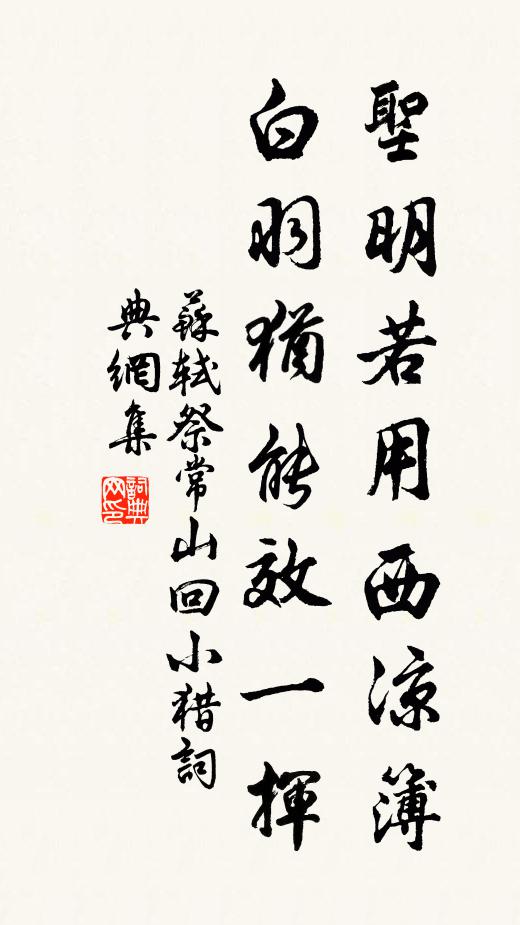 聖明若用西涼簿
白羽猶能效一揮
蘇軾祭常山回小猎詞
典網集
詞典网印